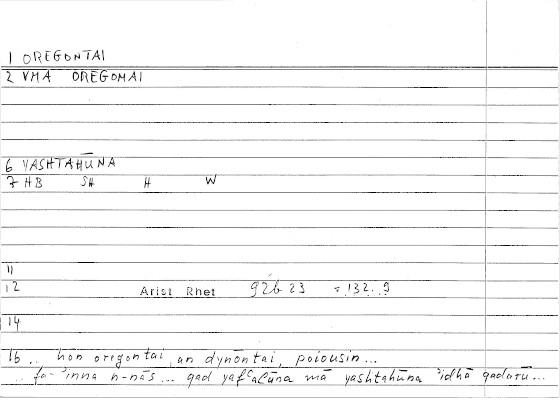 1 OREGONTAI
2 VMA OREGOMAI
6 YASHTAHŪNA
7 HB SH H W
11
12 Arist Rhet 92b 23 = 132. 9
14
16 .. hon oregontai, an dynōntai, poiousin...
.. fa-ʾinna n-nās... qad yafʿalūna mā yashtahūna ʾidhā qadarū...